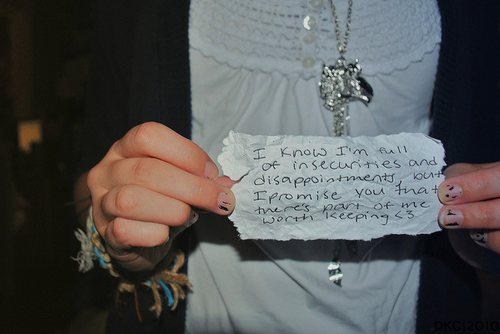 I know I'm full
of insecurities and
disappointments, but
I promise you that
there's part of me
worth keeping <3